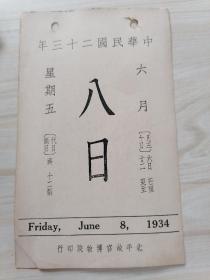 中華民國二十三年
六月
八日
星期五
Friday, June 8, 1934
北平故宮博物院印行